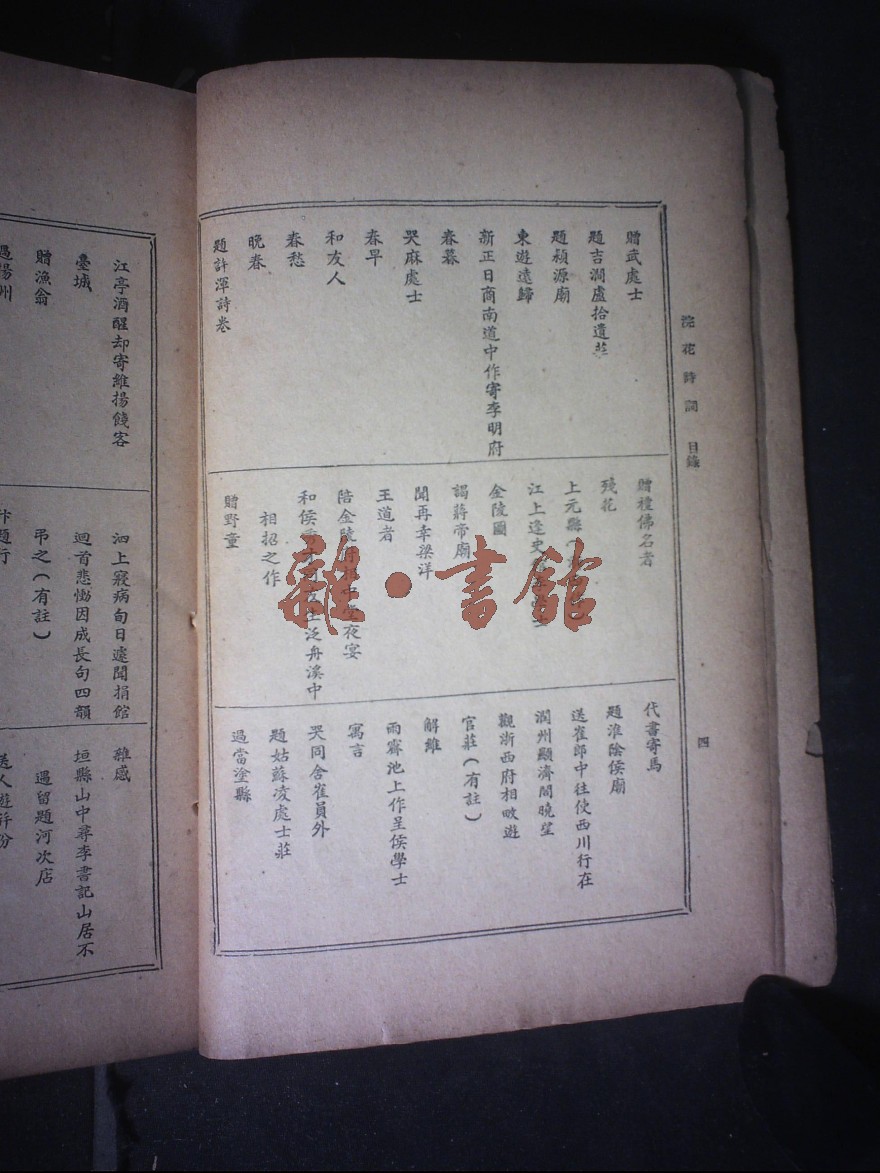 浣花詩詞 目錄
四
贈武處士
題吉澗盧拾遺莊
題潁源廟
東遊遠歸
新正日商南道中作寄李明府
春暮
哭麻處士
春早
和友人
春愁
晚春
題許渾詩卷
贈禮佛名者
殘花
上元縣(
江上逢史
金陵圖
謁蔣帝廟
聞再幸梁洋
王道者
陪金陵 夜宴
和侯 泛舟溪中
相招之作
贈野童
代書寄馬
題淮陰侯廟
送崔郎中往使西川行在
潤州顯濟閣曉望
觀浙西府相畋遊
官莊(有註)
解維
雨霽池上作呈侯學士
寓言
哭同舍崔員外
題姑蘇凌處士莊
過當塗縣
江亭酒醒却寄維揚餞客
臺城
贈漁翁
過揚州
泗上寢病旬日遽聞捐館
迴首悲慟因成長句四韻
弔之(有註)
汴題行
雜感
垣縣山中尋李書記山居不
遇留題河次店
送人遊并汾
雜·書館